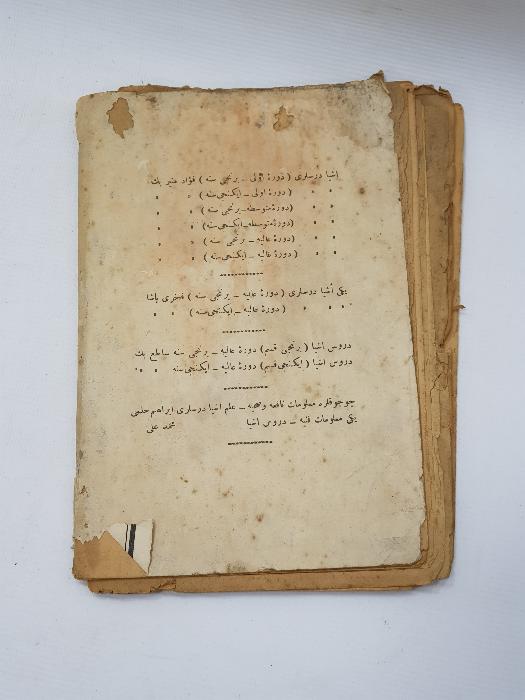 اشیا درسلری ( دورهٔ اولی ـ برنجی سنه ) فؤاد منیر بك
" " ( دورهٔ اولی ـ ایکنجی سنه ) " "
" " ( دورهٔ متوسطه ـ برنجی سنه ) " "
" " ( دورهٔ متوسطه ـ ایکنجی سنه ) " "
" " ( دورهٔ عالیه ـ برنجی سنه ) " "
" " ( دورهٔ عالیه ـ ایکنجی سنه ) " "
یکی اشیا درسلری ( دورهٔ عالیه ـ برنجی سنه ) فخری پاشا
" " " ( دورهٔ عالیه ـ ایکنجی سنه ) " "
دروس اشیا ( برنجی قسم ) دورهٔ عالیه ـ برنجی سنه ساطع بك
دروس اشیا ( ایکنجی قسم ) دورهٔ عالیه ـ ایکنجی سنه " "
چوجوقلره معلومات نافعه وصحیه ـ علم اشیا درسلری ابراهیم حلمی
یکی معلومات فنیه ـ دروس اشیا محمد علی